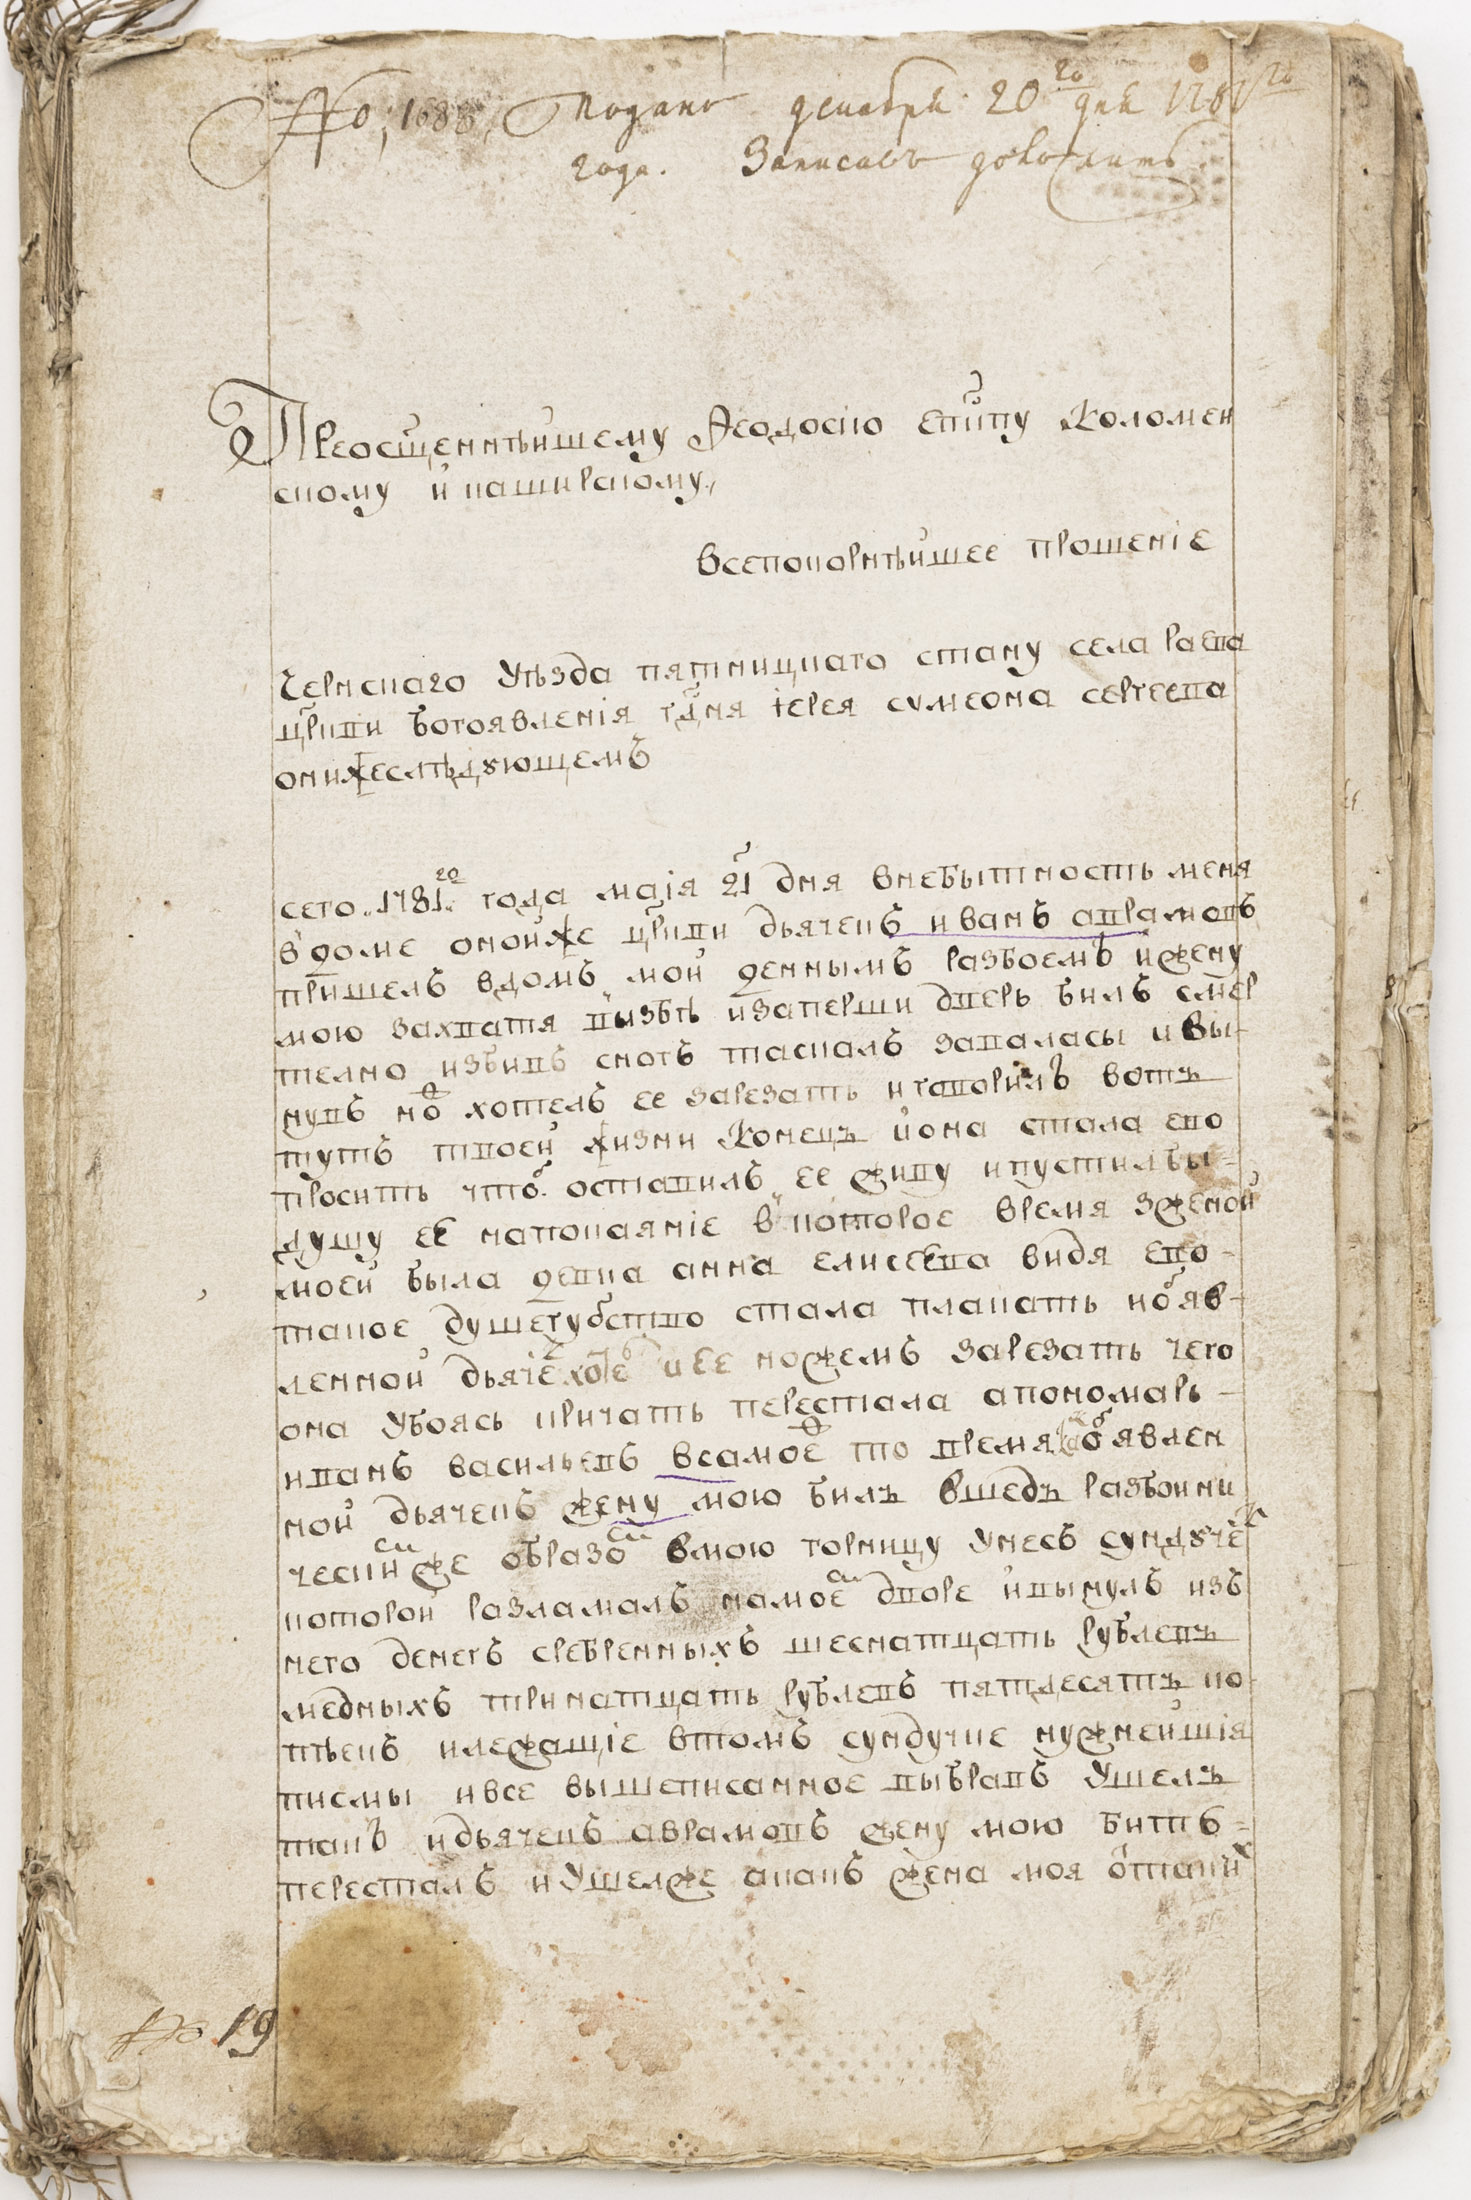 № 1688, Подано декабря 20го дня 1781го
года. Записавъ доложить.
Преосщеннѣйшему Ѳеодосию епⷭ҇пу Коломен
скому и каширскому.,
всепокорнѣйшее прошенїе
Чернскаго Уѣзда пятницкаго стану села раева
цркви Богоявленїя гдня їерея сумеона сергеева
онижеслѣдующемъ
сего 1781го года маїя 21 дня внебытность меня
в доме онойже цркви дьячекъ иванъ аврамовъ
пришелъ вдомъ мой деннымъ разбоемъ ижену
мою захватя вызбѣ изаперши дверь билъ смер
телно избивъ сногъ таскалъ заваласы ивы-
нувъ но хотелъ ее зарезать иговорилъ вотъ
тутъ твоей жизни Конецъ иона стала ево
просить что оставилъ ее живу ипустилбы-
душу ее напокаянїе в которое время зженой
моей была девка анна елисеева видя ево-
такое душегубство стала плакать но обяв-
ленной дьяче хоте иее ножемъ зарезать чего
она Убоясь кричать перестала апономарь-
иванъ васильевъ всамое то время обявлен
ной дьячекъ жену мою билъ вшедъ разбойни
ческимже образо вмою горницу Унесъ сундуче
которой разламалъ намое дворе ивынулъ изъ
него денегъ сребренныхъ шеснатцать рублевъ
медныхъ тринатцать рублевъ пятдесятъ ко-
пѣекъ илежащїе втомъ сундучке нужнейшїя
писмы ивсе вышеписанное выбравъ Ушелъ
такъ идьячекъ аврамовъ жену мою бить-
пересталъ иУшелже акакъ жена моя отаки
№ 19